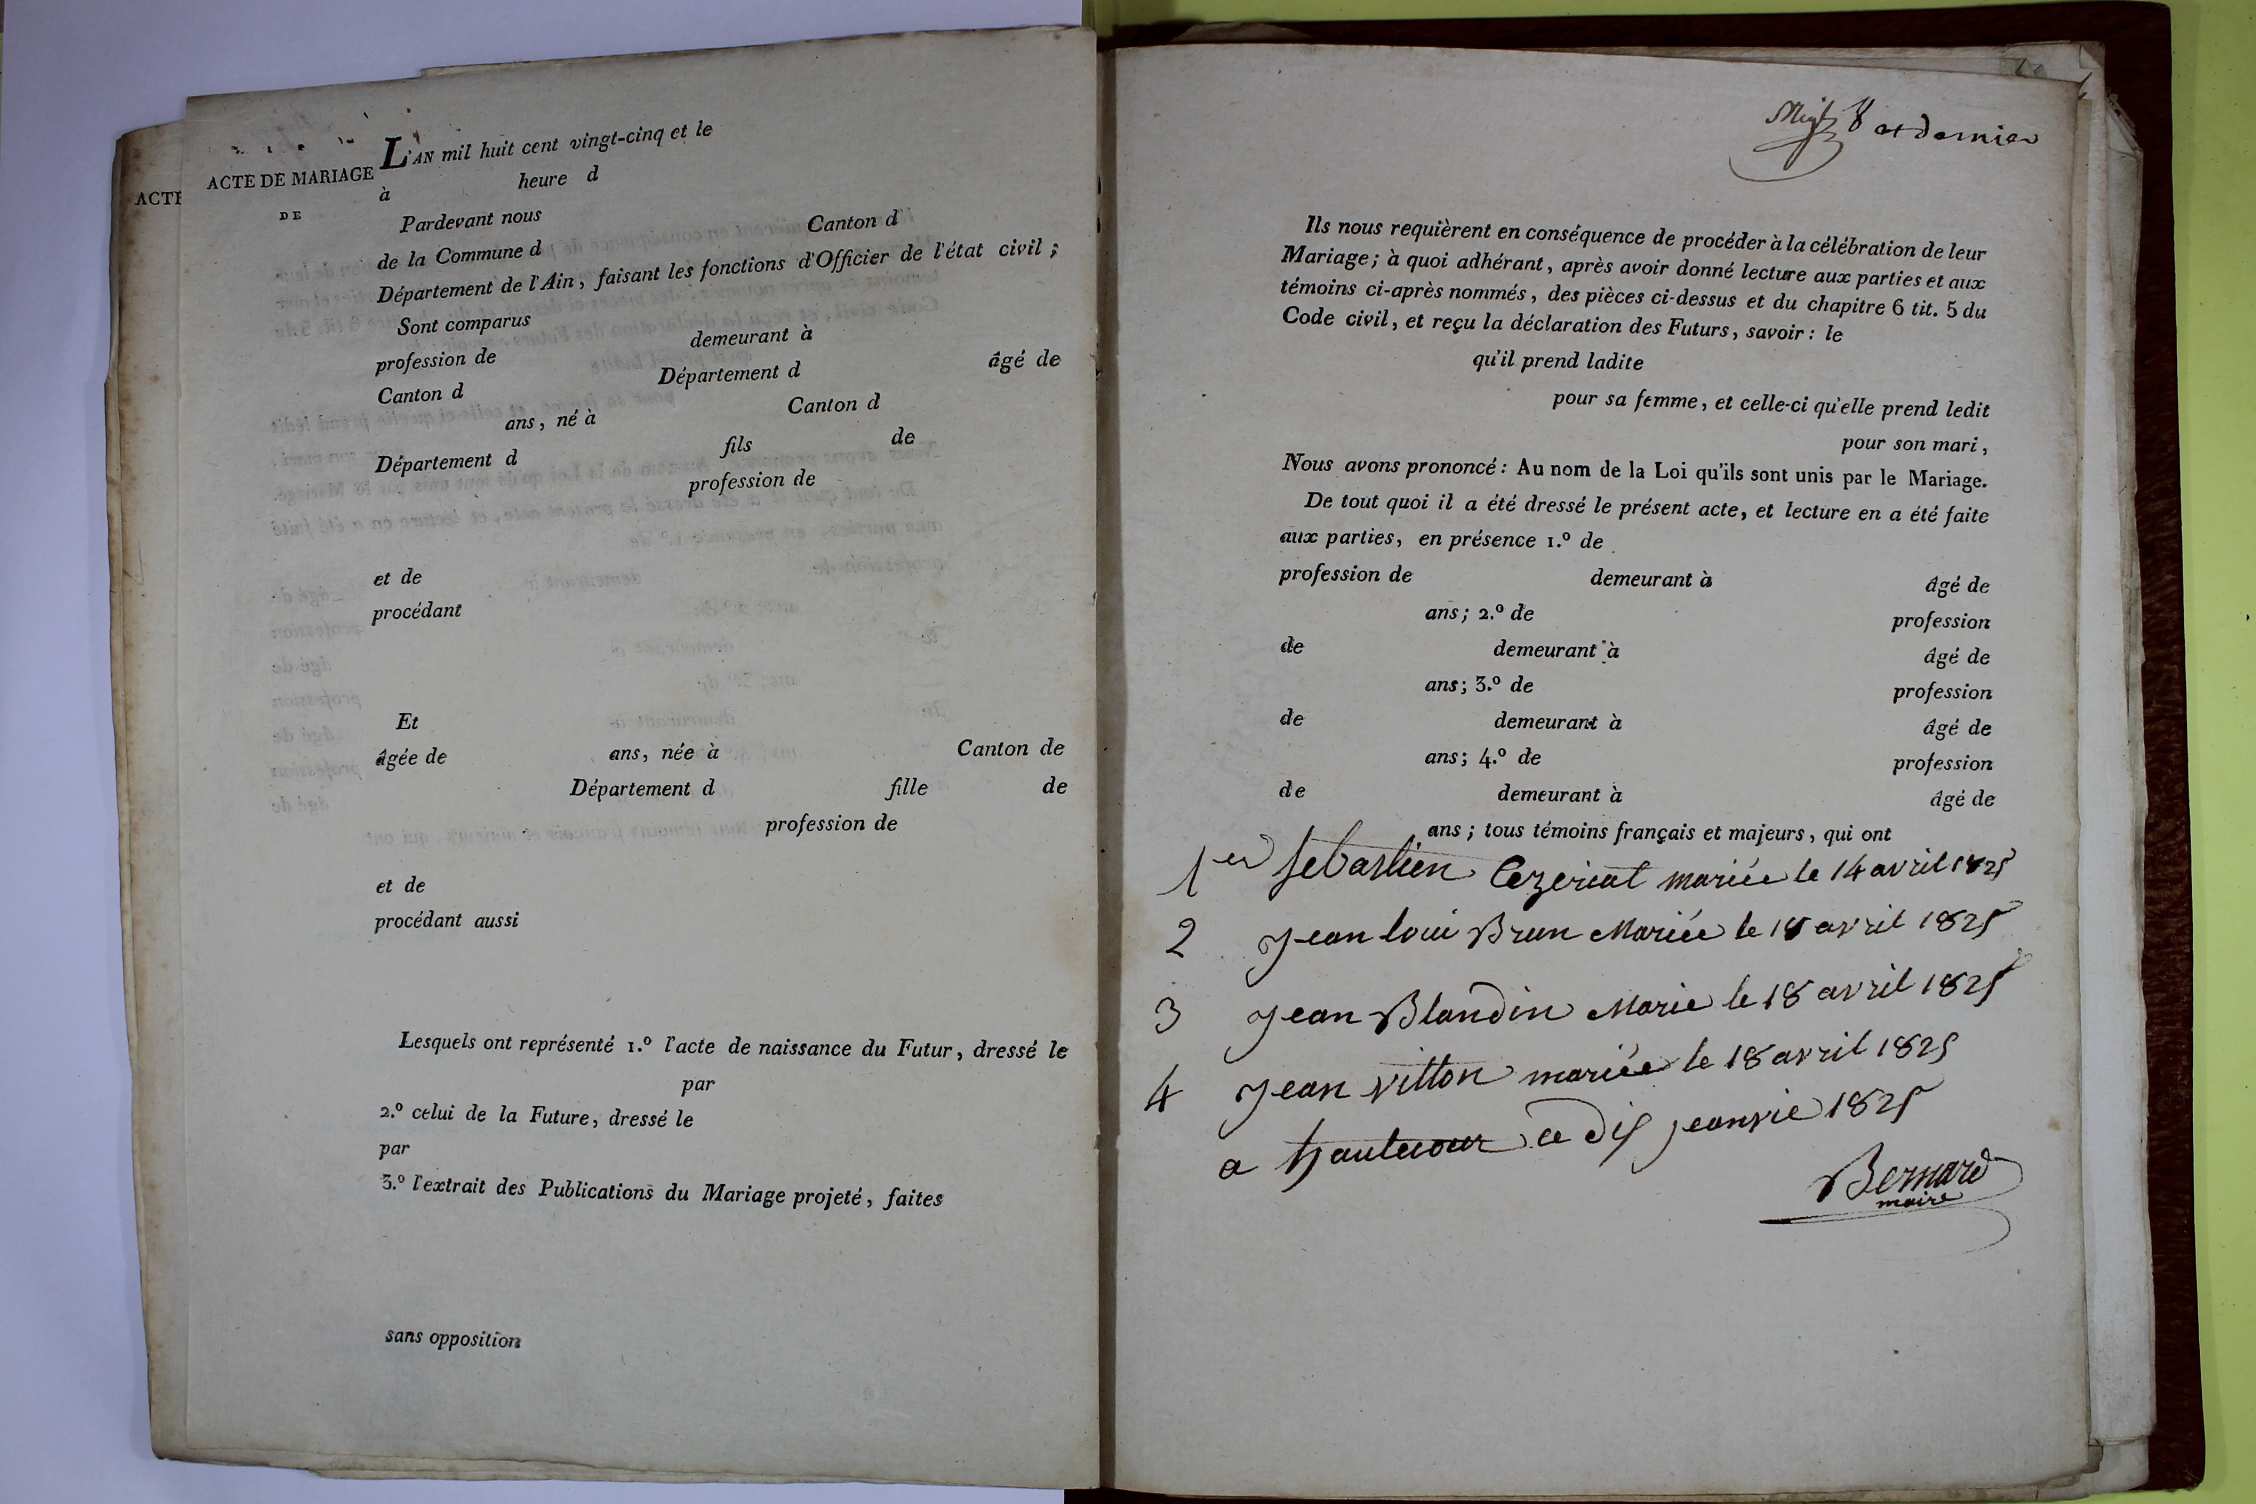 ACTE
ACTE DE MARIAGE
DE
L'AN mil huit cent vingt-cinq et le
à heure d
Pardevant nous
de la Commune d Canton d
Département de l'Ain, faisant les fonctions d'Officier de l'état civil ;
Sont comparus
profession de demeurant à
Canton d Département d âgé de
ans, né à Canton d
Département d fils de
profession de
et de
procédant
Et
âgée de ans, née à Canton de
Département d fille de
profession de
et de
procédant aussi
Lesquels ont représenté 1.º l'acte de naissance du Futur, dressé le
par
2.º celui de la Future, dressé le
par
3.º l'extrait des Publications du Mariage projeté, faites
sans opposition
8 et dernier
Ils nous requièrent en conséquence de procéder à la célébration de leur
Mariage ; à quoi adhérant, après avoir donné lecture aux parties et aux
témoins ci-après nommés, des pièces ci-dessus et du chapitre 6 tit. 5 du
Code civil, et reçu la déclaration des Futurs, savoir : le
qu'il prend ladite
pour sa femme, et celle-ci qu'elle prend ledit
pour son mari,
Nous avons prononcé : Au nom de la Loi qu'ils sont unis par le Mariage.
De tout quoi il a été dressé le présent acte, et lecture en a été faite
aux parties, en présence 1.º de
profession de demeurant à âgé de
ans ; 2.º de profession
de demeurant à âgé de
ans ; 3.º de profession
de demeurant à âgé de
ans ; 4.º de profession
de demeurant à âgé de
ans ; tous témoins français et majeurs, qui ont
1er Sebastien Cezeriat mariée le 14 avril 1825
2 Jean loui Brun Mariée le 18 avril 1825
3 Jean Blandin Marie le 18 avril 1825
4 Jean vitton mariée le 18 avril 1825
a hautecour ce dis jeanvie 1825
Bernard
maire